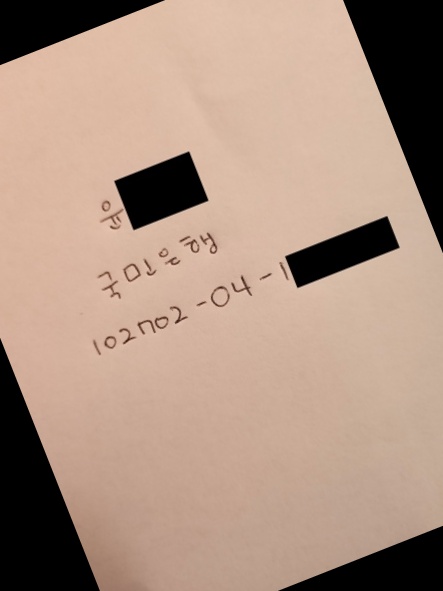 윤
국민은행
102702-04-1